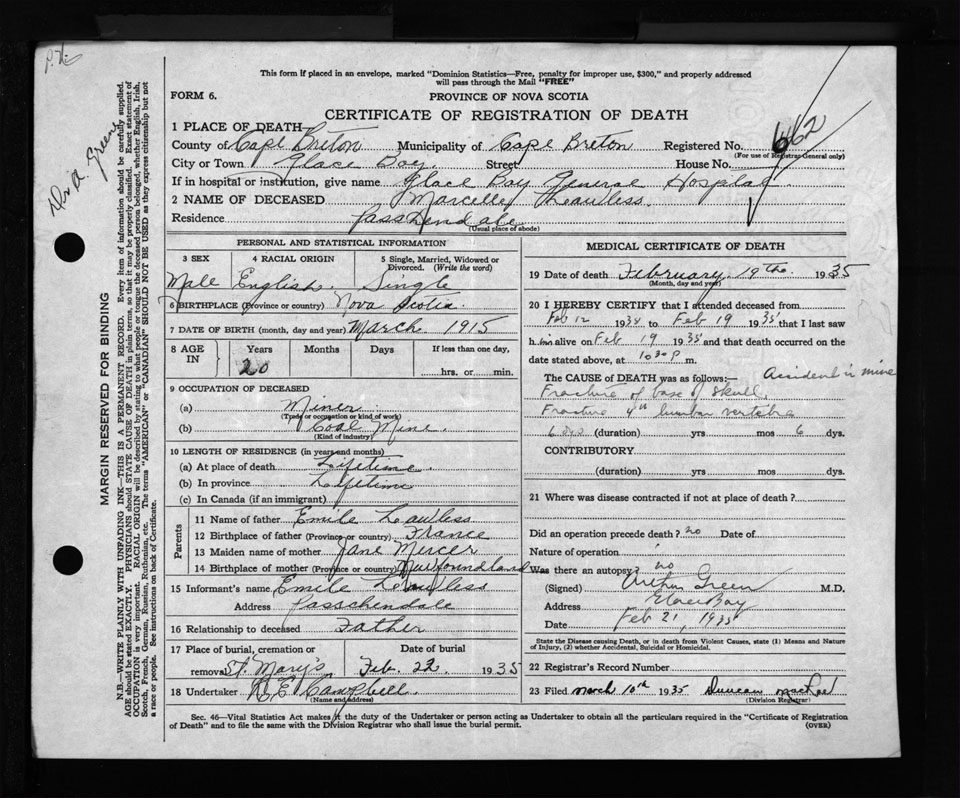 P.H.
Dr A. Greene
This form if placed in an envelope, marked "Dominion Statistics—Free, penalty for improper use, $300," and properly addressed
will pass through the Mail "FREE"
FORM 6.
PROVINCE OF NOVA SCOTIA
CERTIFICATE OF REGISTRATION OF DEATH
1 PLACE OF DEATH
County of Cape Breton Municipality of Cape Breton Registered No. 662
(For use of Registrar-General only)
City or Town Glace Bay Street House No.
If in hospital or institution, give name Glace Bay General Hospital
2 NAME OF DECEASED Marcelle Lawless.
Residence Passchendale
(Usual place of abode)
PERSONAL AND STATISTICAL INFORMATION
3 SEX 4 RACIAL ORIGIN 5 Single, Married, Widowed or
Divorced. (Write the word)
Male English. Single
6 BIRTHPLACE (Province or country) Nova Scotia
7 DATE OF BIRTH (month, day and year) March 1915
8 AGE IN Years Months Days If less than one day,
20 hrs. or min.
9 OCCUPATION OF DECEASED
(a) Miner
(Trade or occupation or kind of work)
(b) Coal Mine.
(Kind of industry)
10 LENGTH OF RESIDENCE (in years and months)
(a) At place of death Lifetime.
(b) In province Lifetime
(c) In Canada (if an immigrant)
Parents
11 Name of father Emile Lawless
12 Birthplace of father (Province or country) France
13 Maiden name of mother Jane Mercer
14 Birthplace of mother (Province or country) Newfoundland
15 Informant's name Emile Lawless
Address Passchendale
16 Relationship to deceased Father
17 Place of burial, cremation or Date of burial
removal St. Mary's Feb. 22 1935
18 Undertaker E Campbell.
(Name and address)
MEDICAL CERTIFICATE OF DEATH
19 Date of death February 19th 1935
(Month, day and year)
20 I HEREBY CERTIFY that I attended deceased from
Feb 12 1934 to Feb 19 1935 that I last saw
h im alive on Feb 19 1935 and that death occurred on the
date stated above, at 1030 P m.
The CAUSE OF DEATH was as follows:— Accident in mine
Fracture of base of skull
Fracture 4th lumbar vertebra
6 dys (duration) yrs mos 6 dys.
CONTRIBUTORY
(duration) yrs mos dys.
21 Where was disease contracted if not at place of death?
Did an operation precede death? no Date of
Nature of operation
Was there an autopsy? no
(Signed) Arthur Green M.D.
Address Glace Bay
Date Feb 21, 1935
State the Disease causing Death, or in death from Violent Causes, state (1) Means and Nature
of Injury, (2) whether Accidental, Suicidal or Homicidal.
22 Registrar's Record Number
23 Filed March 10th 1935 Duncan
(Division Registrar)
Sec. 46—Vital Statistics Act makes it the duty of the Undertaker or person acting as Undertaker to obtain all the particulars required in the "Certificate of Registration
of Death" and to file the same with the Division Registrar who shall issue the burial permit. (OVER)
MARGIN RESERVED FOR BINDING
N.B.—WRITE PLAINLY WITH UNFADING INK—THIS IS A PERMANENT RECORD. Every item of information should be carefully supplied.
AGE should be stated EXACTLY. PHYSICIANS should STATE CAUSE OF DEATH in plain terms, so that it may be properly classified. Exact statement of
OCCUPATION is very important. RACIAL ORIGIN will be described by stating to what people or tongue the deceased person belonged, whether English, Irish,
Scotch, French, German, Russian, Ruthenian, etc. The terms "AMERICAN" or "CANADIAN" SHOULD NOT BE USED as they express citizenship but not
a race or people. See instructions on back of Certificate.